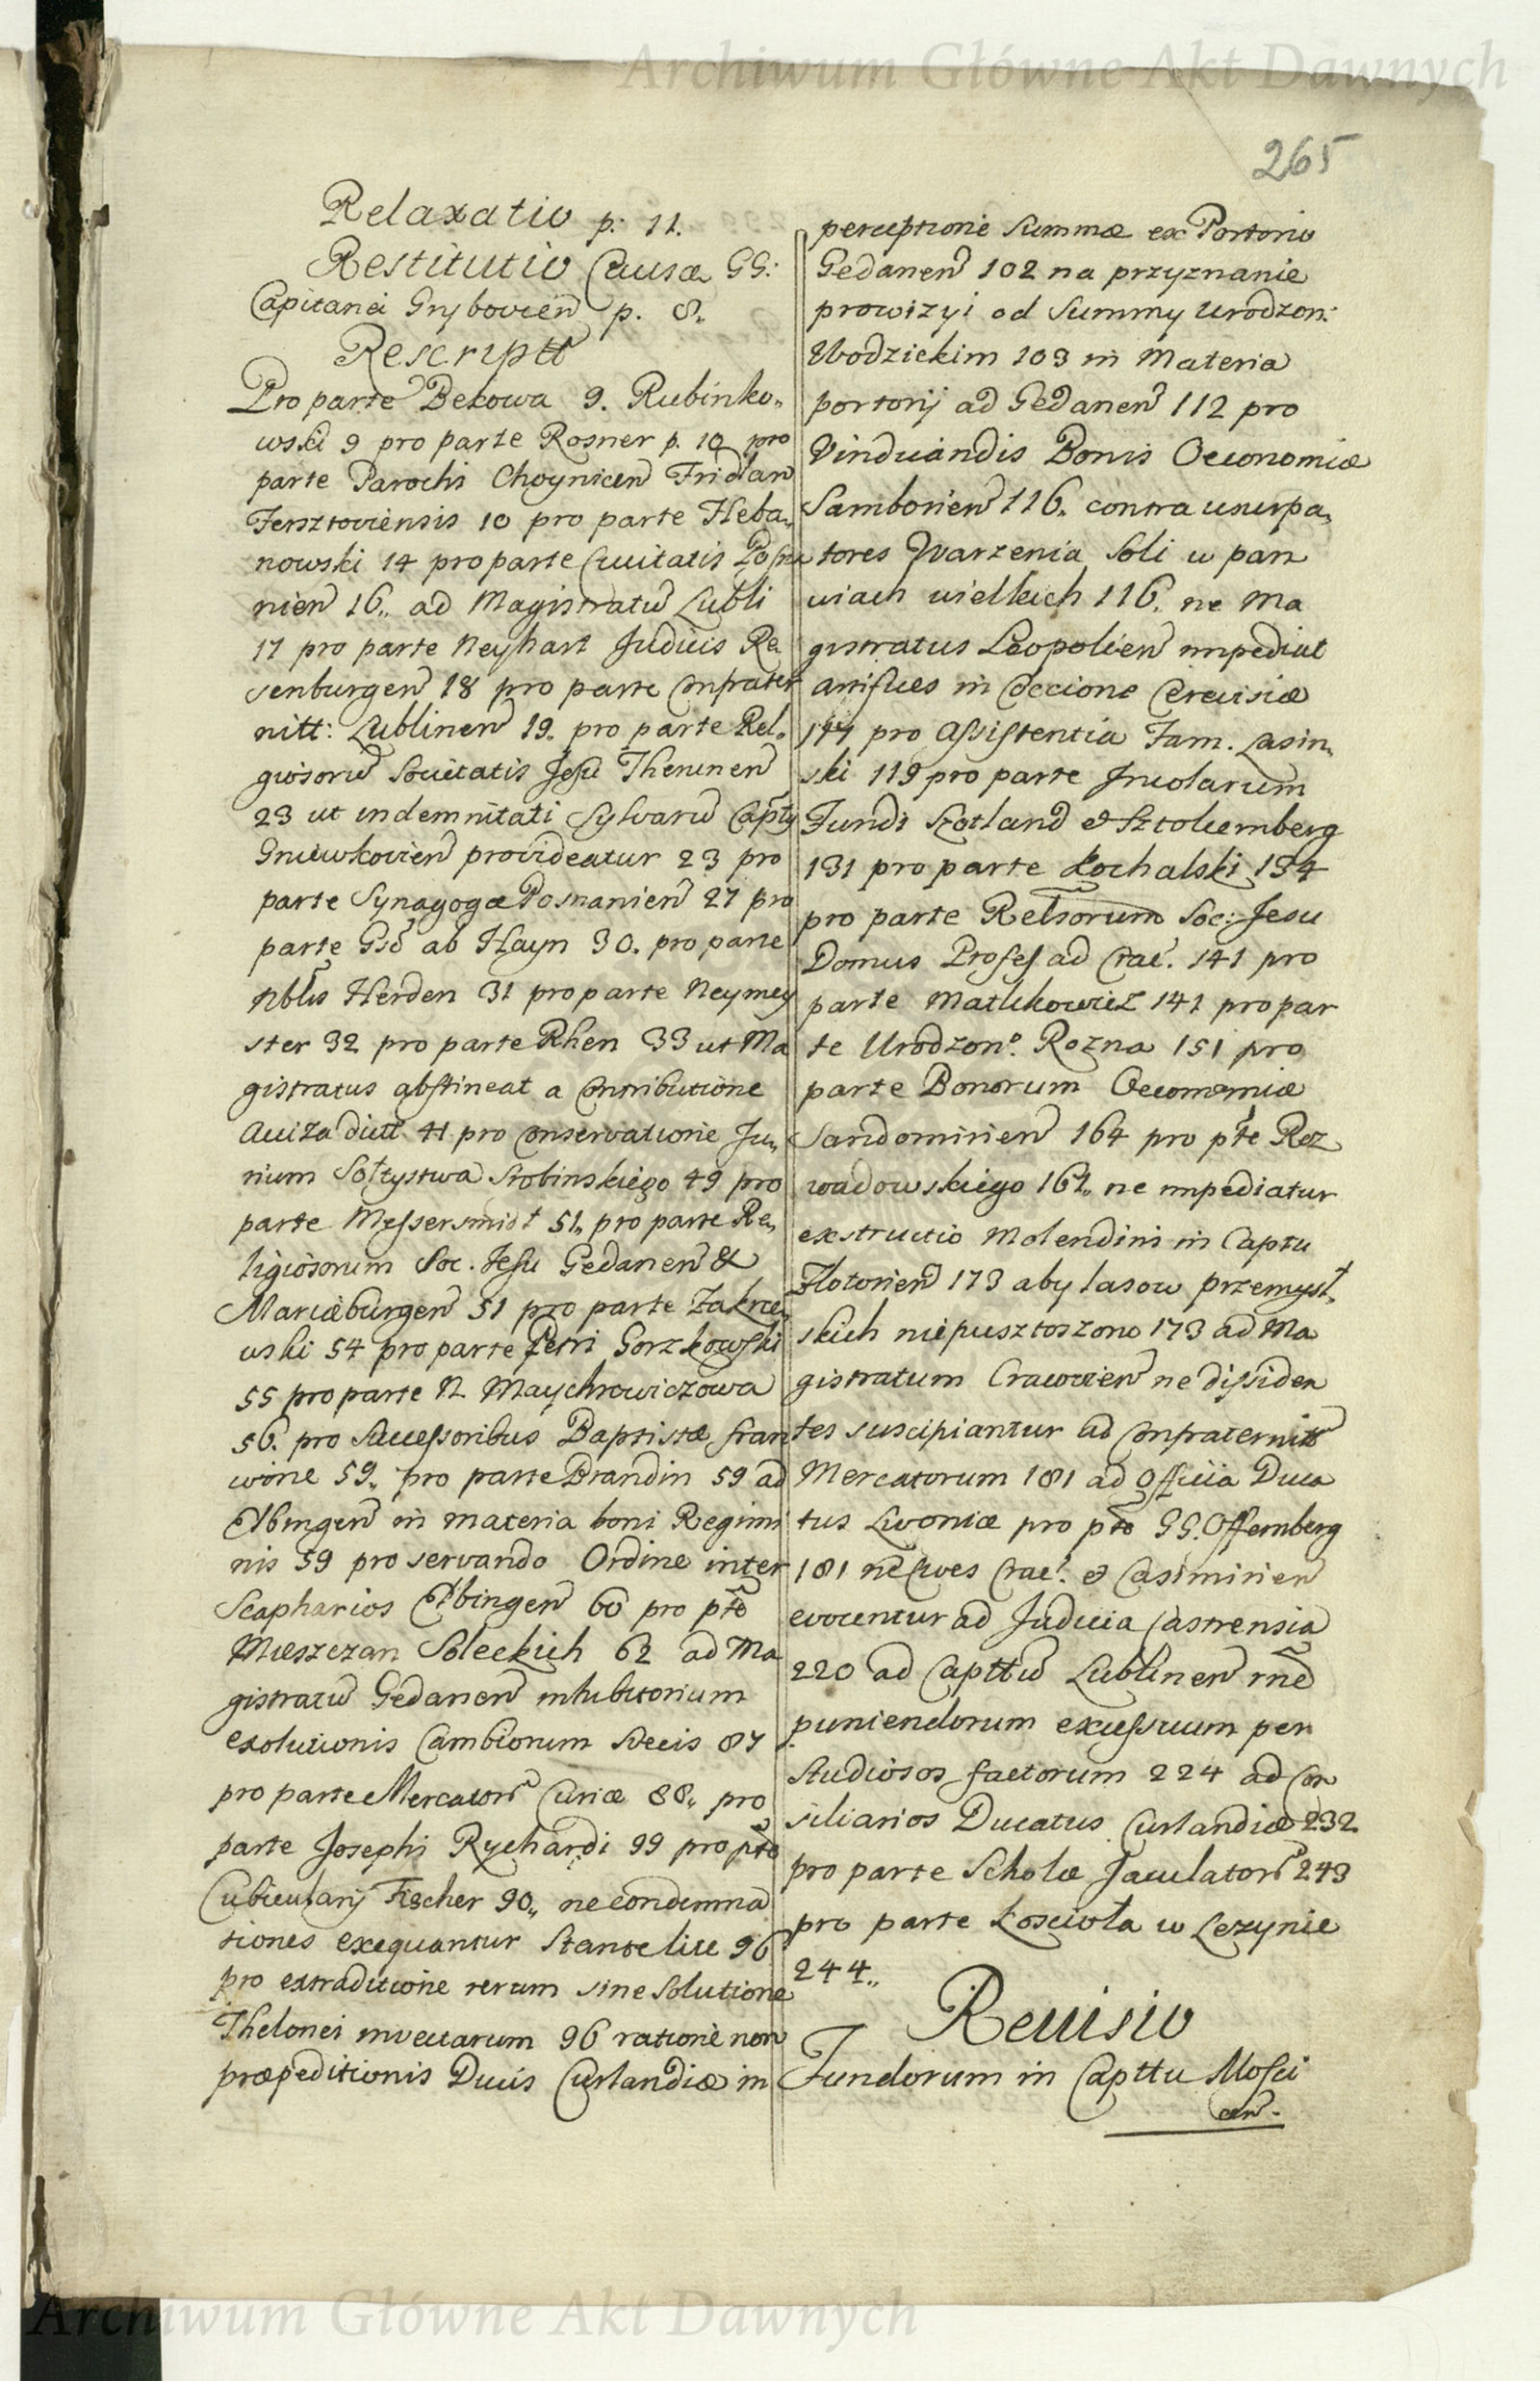 Archiwum Główne Akt Dawnych
265
Relaxatio p. 11.
Restitutio Causæ GG:
Capitanei Grybovien p. 8.
Rescriptt
Pro parte Bekowa 9. Rubinko„
wski 9 pro parte Rosner p. 10 pro
parte Parochi Choynicen Fridlan
Fersztoviensis 10 pro parte Heba„
nowski 14 pro parte Civitatis Posna
nien 16„ ad Magistratu Lubli
17 pro parte Neyhart Judicis Re
senburgen 18 pro parte Confrater
nitt: Lublinen 19„ pro parte Rel„
giosoru Societatis Jesu Thorunen
23 ut indemnitati Sylvaru Capty
Gniewkovien provideatur 23 pro
parte Synagogæ Posnanien 27 pro
parte Gsd ab Hayn 30. pro parte
Nblis Herden 31 pro parte Neymey
ster 32 pro parte Rhen 33 ut Ma
gistratus abstineat a Contributione
Aviza dictt 41 pro Conservatione Ju„
rium Sołtystwa Stobinskiego 49 pro
parte Messersmidt 51„ pro parte Re„
ligiosorum Soc. Jesu Gedanen &
Mariæburgen 51 pro parte Zakrze„
wski 54 pro parte Petri Gorzkowski
55 pro parte N Maychrowiczowa
56. pro Successoribus Baptistæ fran
wone 59„ pro parte Brandin 59 ad
Elbingen in materia boni Regimi
nis 59 pro servando Ordine inter
Scapharios Elbingen 60 pro pte
Mieszczan Soleckich 62 ad Ma
gistratu Gedanen inhibitorium
exolutionis Cambiorum Svecis 87
pro parte Mercator Curiæ 88„ pro
parte Josephi Rychardi 99 pro pte
Cubicularij Fischer 90„ ne condemna
tiones exequantur Stante lite 96
pro extraditione rerum sine solutione
Thelonei invectarum 96 ratione non
præpeditionis Ducis Curlandiæ in
perceptione Summæ ex Portorio
Gedanen 102 na przyznanie
prowizyi od Summy Urodzon:
Wodzickim 103 in Materia
portorij ad Gedanen 112 pro
Vinducandis Bonis Oeconomiæ
Samborien 116„ contra usurpa„
tores Warzenia Soli w pan
wiach wielkich 116„ ne Ma
gistratus Leopolien impediat
artifices in Coccione Cerevisiæ
117 pro Assistentia Fam. Lasin„
ski 119 pro parte Incolarum
Fundi Szotland & Sztolcemberg
131 pro parte Kochalski 134
pro parte Relsorum Soc: Jesu
Domus Profess ad Crac. 141 pro
parte Matckowicz 141 pro par
te Urodzono. Rozna 151 pro
parte Bonorum Oeconomiæ
Sandomirien 164 pro pte Roz
wadowskiego 161„ ne impediatur
exstructio Molendini in Captu
Złotorien 173 aby lasow przemysl„
skich nie pusztoszono 173 ad Ma
gistratum Cracovien ne dissiden
tes suscipiantur ad Confraternitt
Mercatorum 181 ad Officia Duca
tus Livoniæ pro pte GG. Offemberg
181 ne Cives Crac. & Casimirien
evocentur ad Judicia Castrensia
220 ad Capttu Lublinen rne
puniendorum excessuum per
Studiosos factorum 224 ad Con
siliarios Ducatus Curlandiæ 232
pro parte Scholæ Jaculator 243
pro parte Kosciola w Lezynie
244„
Revisio
Fundorum in Capttu Mosci
cen.
Archiwum Główne Akt Dawnych